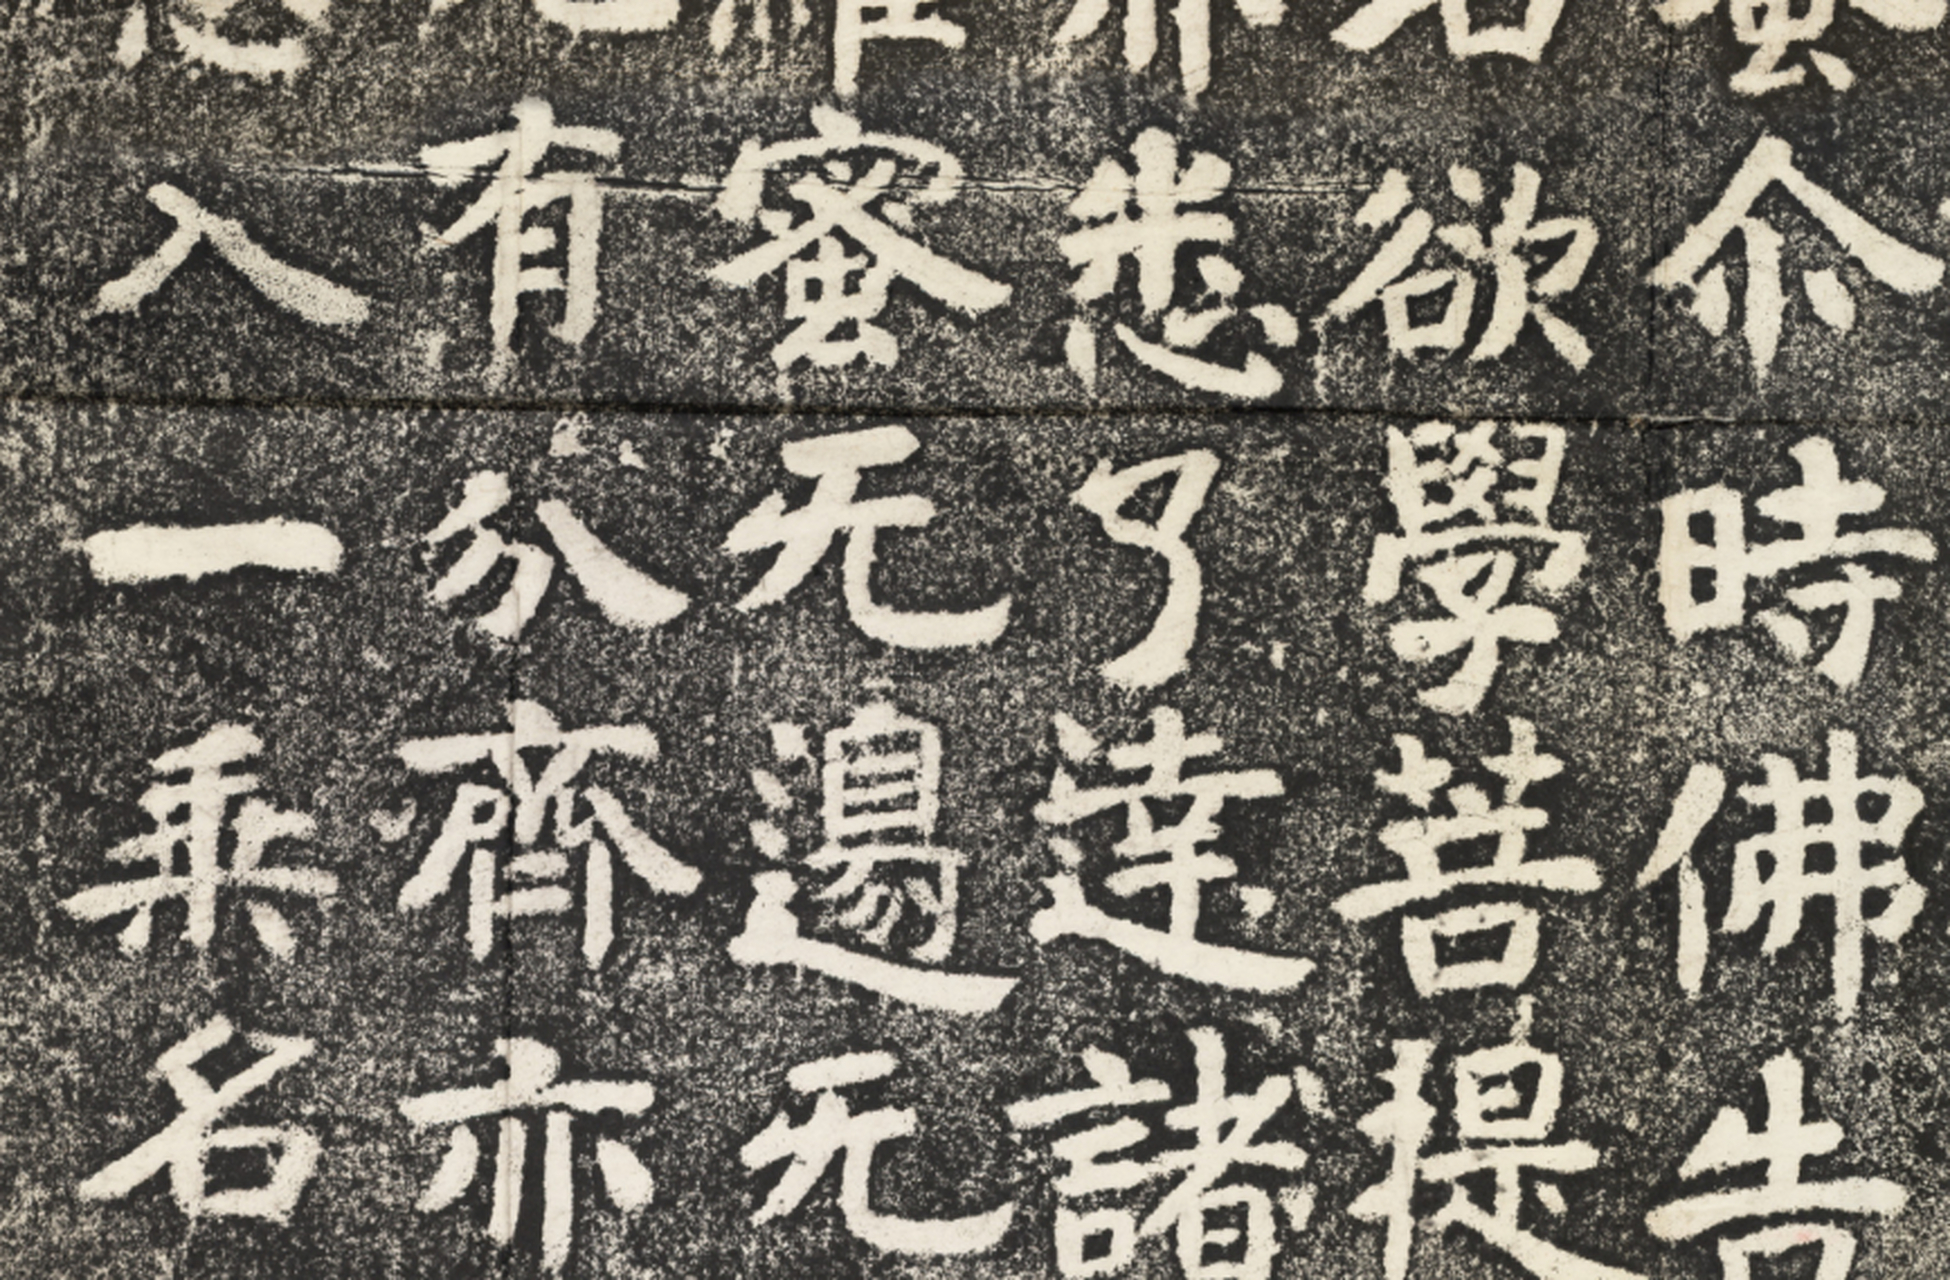 尒時佛告
若欲學菩提
亦悉了達諸
蜜无邊无
有分齊亦
入一乘名